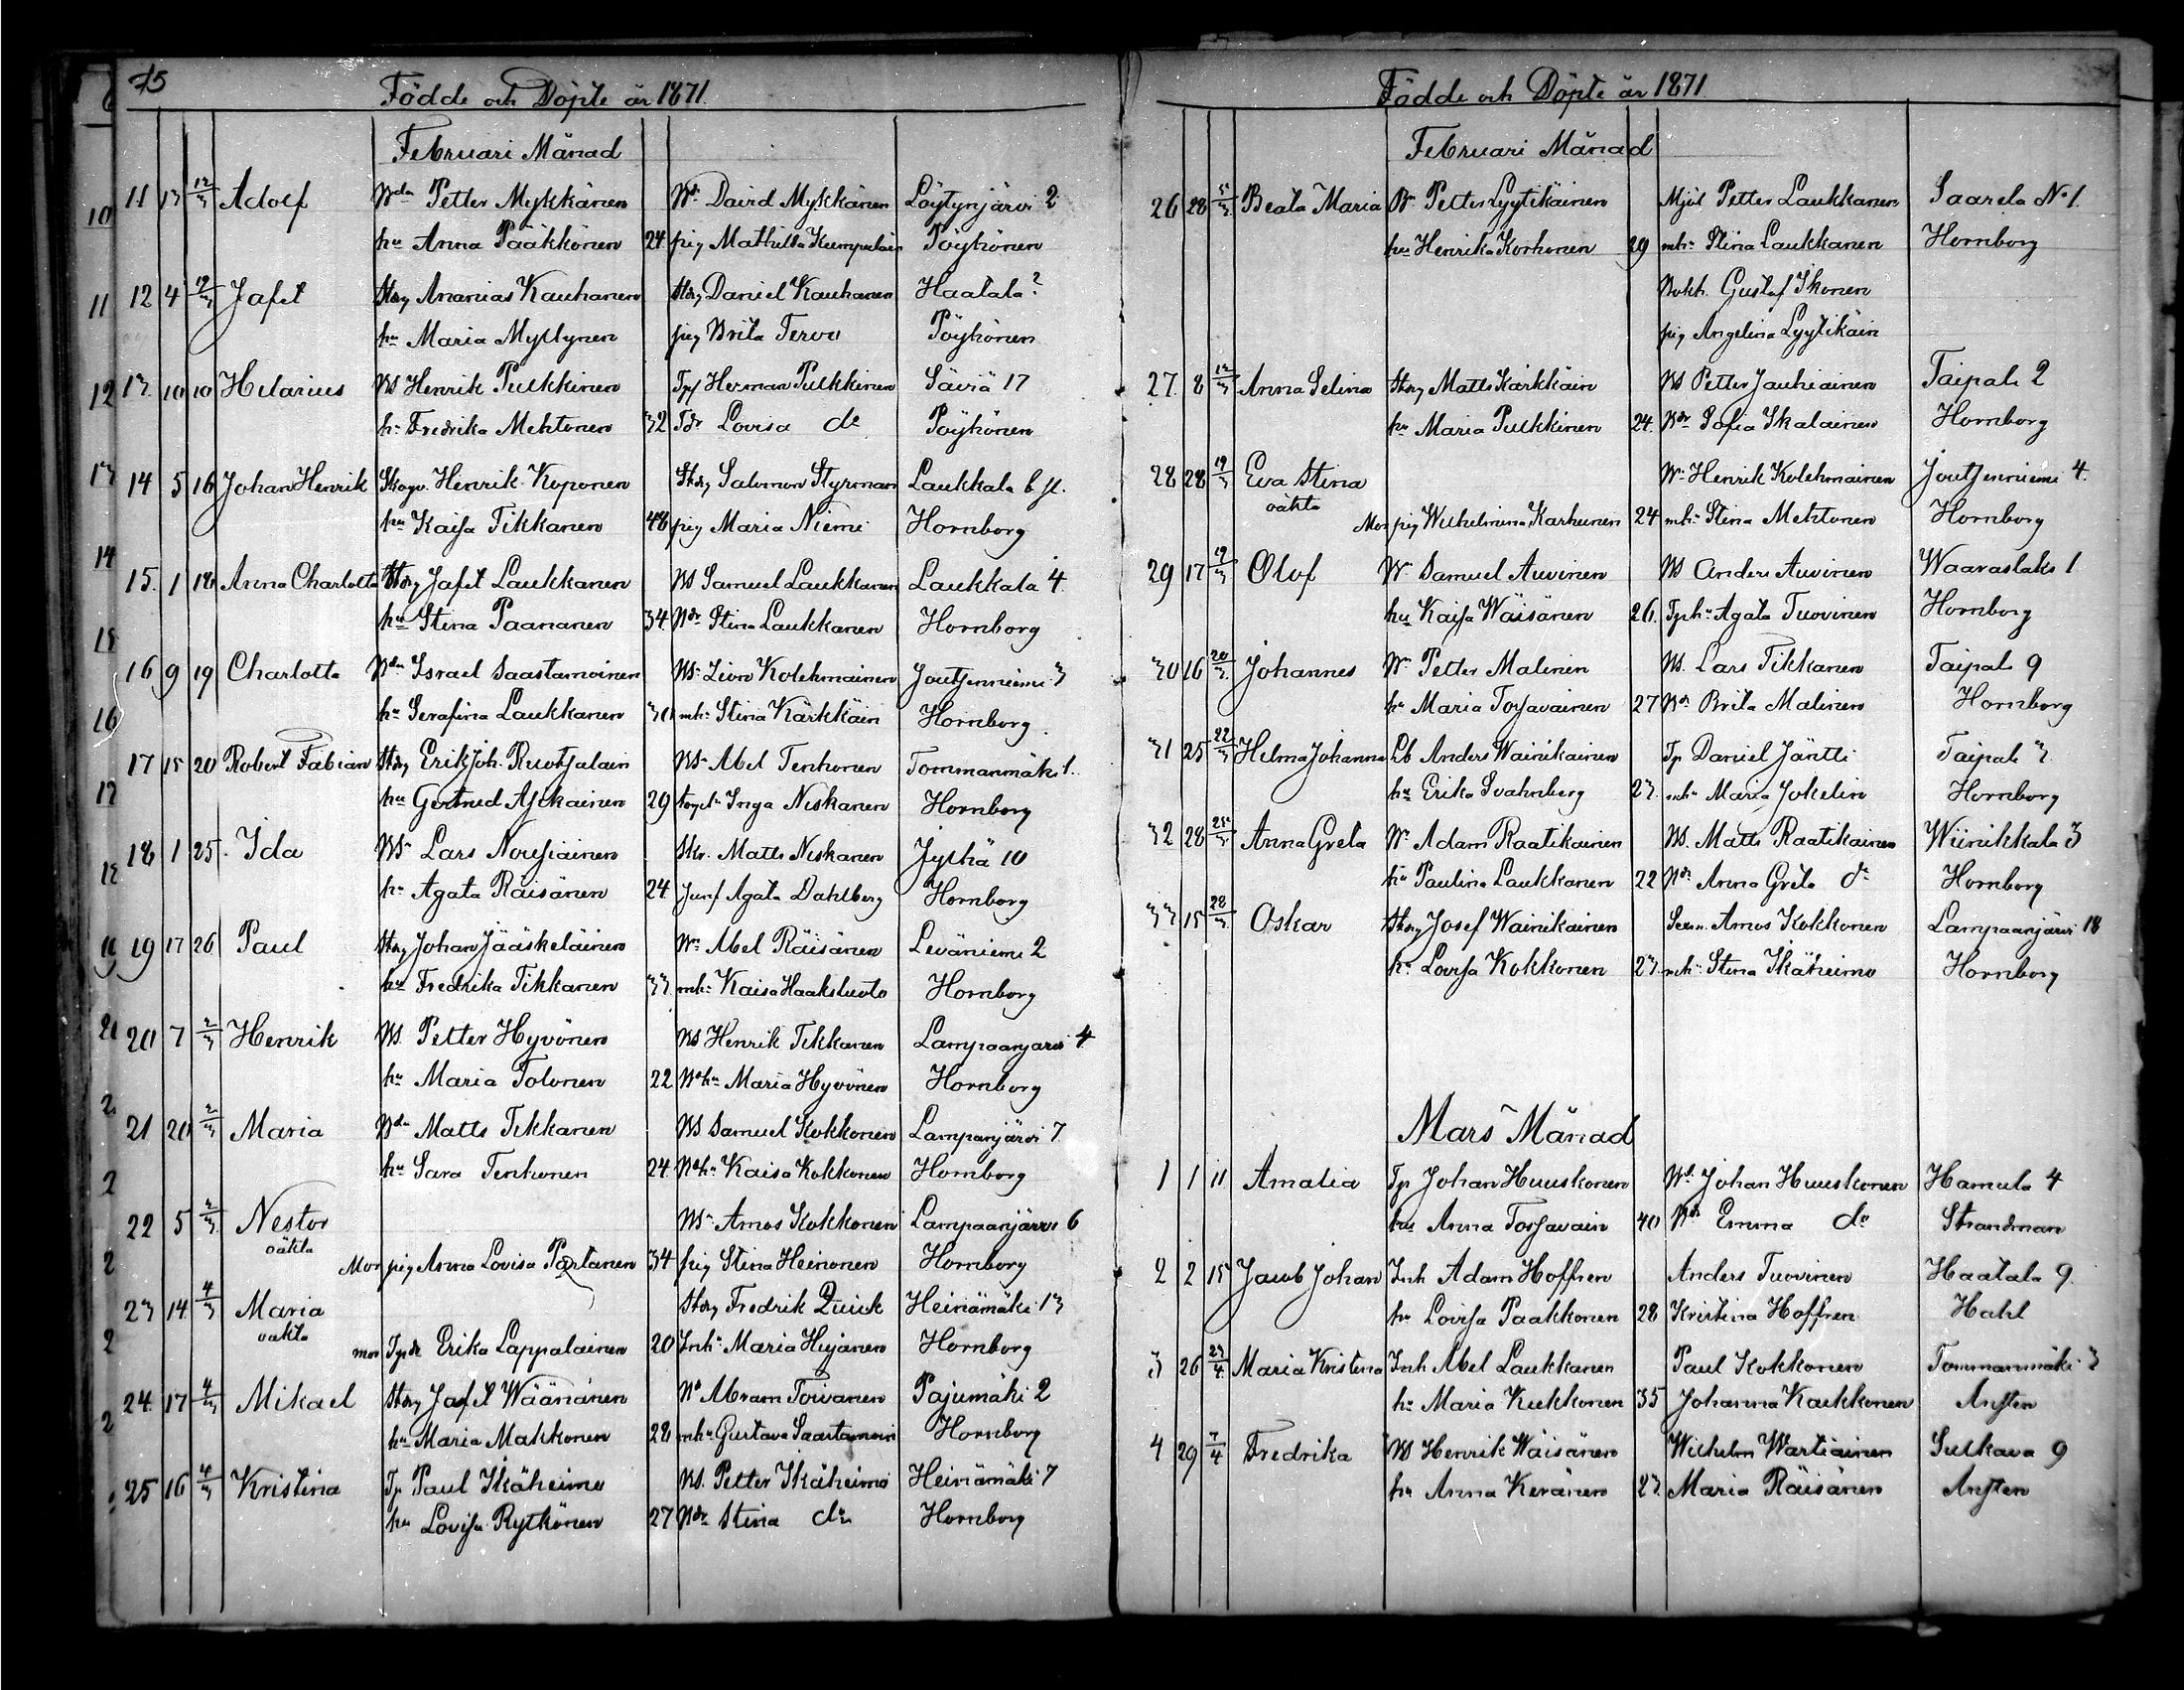 75
Födde och Döpte år 1871.
Februari Månad
11 13 12/3 Adolf Bdn Petter Mykkänen Bd David Mykkänen Löytynjärvi 2
hu Anna Pääkkönen 24 pig Mathilda Kumpulain Pöyhönen
12 4 12/3 Jafet Storp Ananias Kauhanen Storp Daniel Kauhanen Haatala 2
hu Maria Myllynen pig Brita Tervo Pöyhönen
13 10 10 Hilarius Bd Henrik Pulkkinen Tp Herman Pulkkinen Säviä 17
hu Fredrika Mehtonen 32 Tdr Lovisa do Pöyhönen
14 5 16 Johan Henrik Skogv. Henrik Koponen Storp Salomon Styrman Laukkala b. st.
hu Kaisa Tikkanen 48 pig Maria Niemi Hornborg
15. 1 18 Anna Charlotta Storp Jafet Laukkanen Bd Samuel Laukkanen Laukkala 4
hu Stina Paananen 34 Bdr Stina Laukkanen Hornborg
16 9 19 Charlotta Bdn Israel Saastamoinen Bd Leon Kolehmainen Joutsenniemi 3
hu Serafina Laukkanen 30 mhu Stina Kärkkäin Hornborg
17 15 20 Robert Fabian Storp Erik Joh. Ruotsalain Bd Abel Tenhonen Tommanmäki 1.
hu Gertrud Asikainen 29 Inga Niskanen Hornborg
18 1 25. Ida Bd Lars Nousiainen Matts Niskanen Jylhä 10
hu Agata Räisänen 24 Junf Agata Dahlberg Hornborg
19 17 26 Paul Storp Johan Jääskeläinen Bd Abel Räisänen Leväniemi 2
hu Fredrika Tikkanen 33 mhu Kaisa Haaksluoto Hornborg
20 7 2/3 Henrik Bd Petter Hyvönen Bd Henrik Tikkanen Lampaanjärvi 4
hu Maria Tolonen 22 Bdhu Maria Hyvönen Hornborg
21 20 2/3 Maria Bdn Matts Tikkanen Bd Samuel Kokkonen Lampanjärvi 7
hu Sara Tenhonen 24 Bdhu Kaisa Kokkonen Hornborg
22 5 2/3 Nestor Bd Amos Kokkonen Lampaanjärvi 6
oäkta
Mor pig Anna Lovisa Partanen 34 pig Stina Heinonen Hornborg
23 14 4/3 Maria Storp Fredrik Quick Heinämäki 13
oäkta
mor Tpdr Erika Lappalainen 20 Inhu Maria Hujanen Hornborg
24. 17 4/3 Mikael Storp Jafet Wäänänen Bd Abram Toivanen Pajumäki 2
hu Maria Makkonen 28 mhu Gustava Saastamoin Hornborg
25 16 4/3 Kristina Tp Paul Ikäheimo Bd. Petter Ikäheimo Heinämäki 7
hu Lovisa Rytkönen 27 Bdr Stina do Hornborg
Födde och Döpte år 1871
Februari Månad
26 28 5/3 Beata Maria Bd Petter Lyytikäinen Mjöl Petter Laukkanen Saarela No 1.
hu Henrika Korhonen 29 mhu Stina Laukkanen Hornborg
Bokh. Gustaf Ikonen
pig Angelina Lyytikäin
27. 8 12/3 Anna Selina Storp Matts Kärkkäin Bd Petter Jauhiainen Taipale 2
hu Maria Pulkkinen 24. Bdr Sofia Skalainen Hornborg
28 28 19/3 Eva Stina Bd Henrik Kolehmainen Joutsenniemi 4.
oäkta
Mor pig Wilhelmina Karhunen 24 mhu Stina Mehtonen Hornborg
29 17 19/3 Olof Bd Samuel Auvinen Bd Anders Auvinen Waaraslaks 1
hu Kaisa Wäisänen 26. Tphu Agata Tuovinen Hornborg
30 16 20/3 Johannes Bd Petter Malinen Bd. Lars Tikkanen Taipale 9
hu Maria Tossavainen 27 Bdr Brita Malinen Hornborg
31 25 22/3 Helma Johanna Lb Anders Wainikainen Tp Daniel Jäntti Taipale 3
hu Erika Svahnberg 23. mhu Maria Jokelin Hornborg
32 28 25/3 Anna Greta Bd Adam Raatikainen Bd. Matts Raatikainen Wiinikkala 3
hu Paulina Laukkanen 22 Bdr Anna Greta do Hornborg
33 15 28/3 Oskar Storp Josef Wainikainen Amos Kokkonen Lampaanjärvi 18
hu Lovisa Kokkonen 23. mhu Stina Ikäheimo Hornborg
Mars Månad
1 1 11 Amalia Tp Johan Huuskonen Bd. Johan Huuskonen Hamula 4
hu Anna Tossavain 40 Bdr Emma do Strandman
2 2 15 Jacob Johan Inh Adam Hoffren Anders Tuovinen Haatala 9.
hu Lovisa Paakkonen 28 Kristina Hoffren Hahl
3 26 23/4 Maria Kristina Inh Abel Laukkanen Paul Kokkonen Tommanmäki 3
hu Maria Kukkonen 35 Johanna Kaukkonen Ansten
4 29 7/4 Fredrika Bd Henrik Wäisänen Wilhelm Wartiainen Sulkava 9
hu Anna Keränen 23. Maria Räisänen Ansten